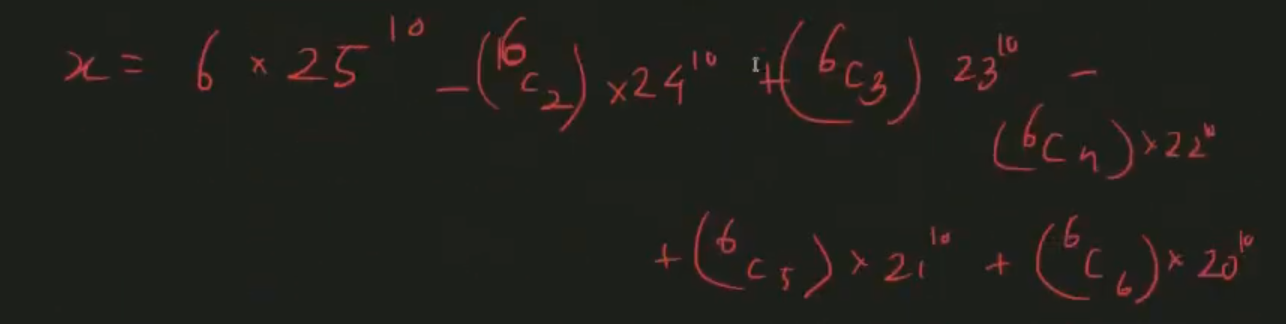 x = 6 × 25^10 - (^6C_2) × 24^10 + (^6C_3) 23^10 -
(^6C_4) × 22^10
+ (^6C_5) × 21^10 + (^6C_6) × 20^10